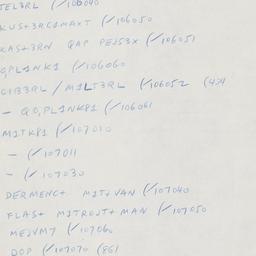 TEL3RL (✓106040
KUS+3RC1MAXT (✓106050
KAS+3RN QAP PEJS3X (✓106051
0,PL1NK1 (✓106060
C1B3RL / M1LT3RL (✓106052 (474
– Q0,PL1NK81 (✓106061
M1TK81 (✓107010
– (✓107011
– (✓107030
DERMENC+ M1T+VAN (✓107040
FLAS+ M1TROJT+MAN (✓107050
MEJVM7 (✓107060
DOP (✓107070 (861